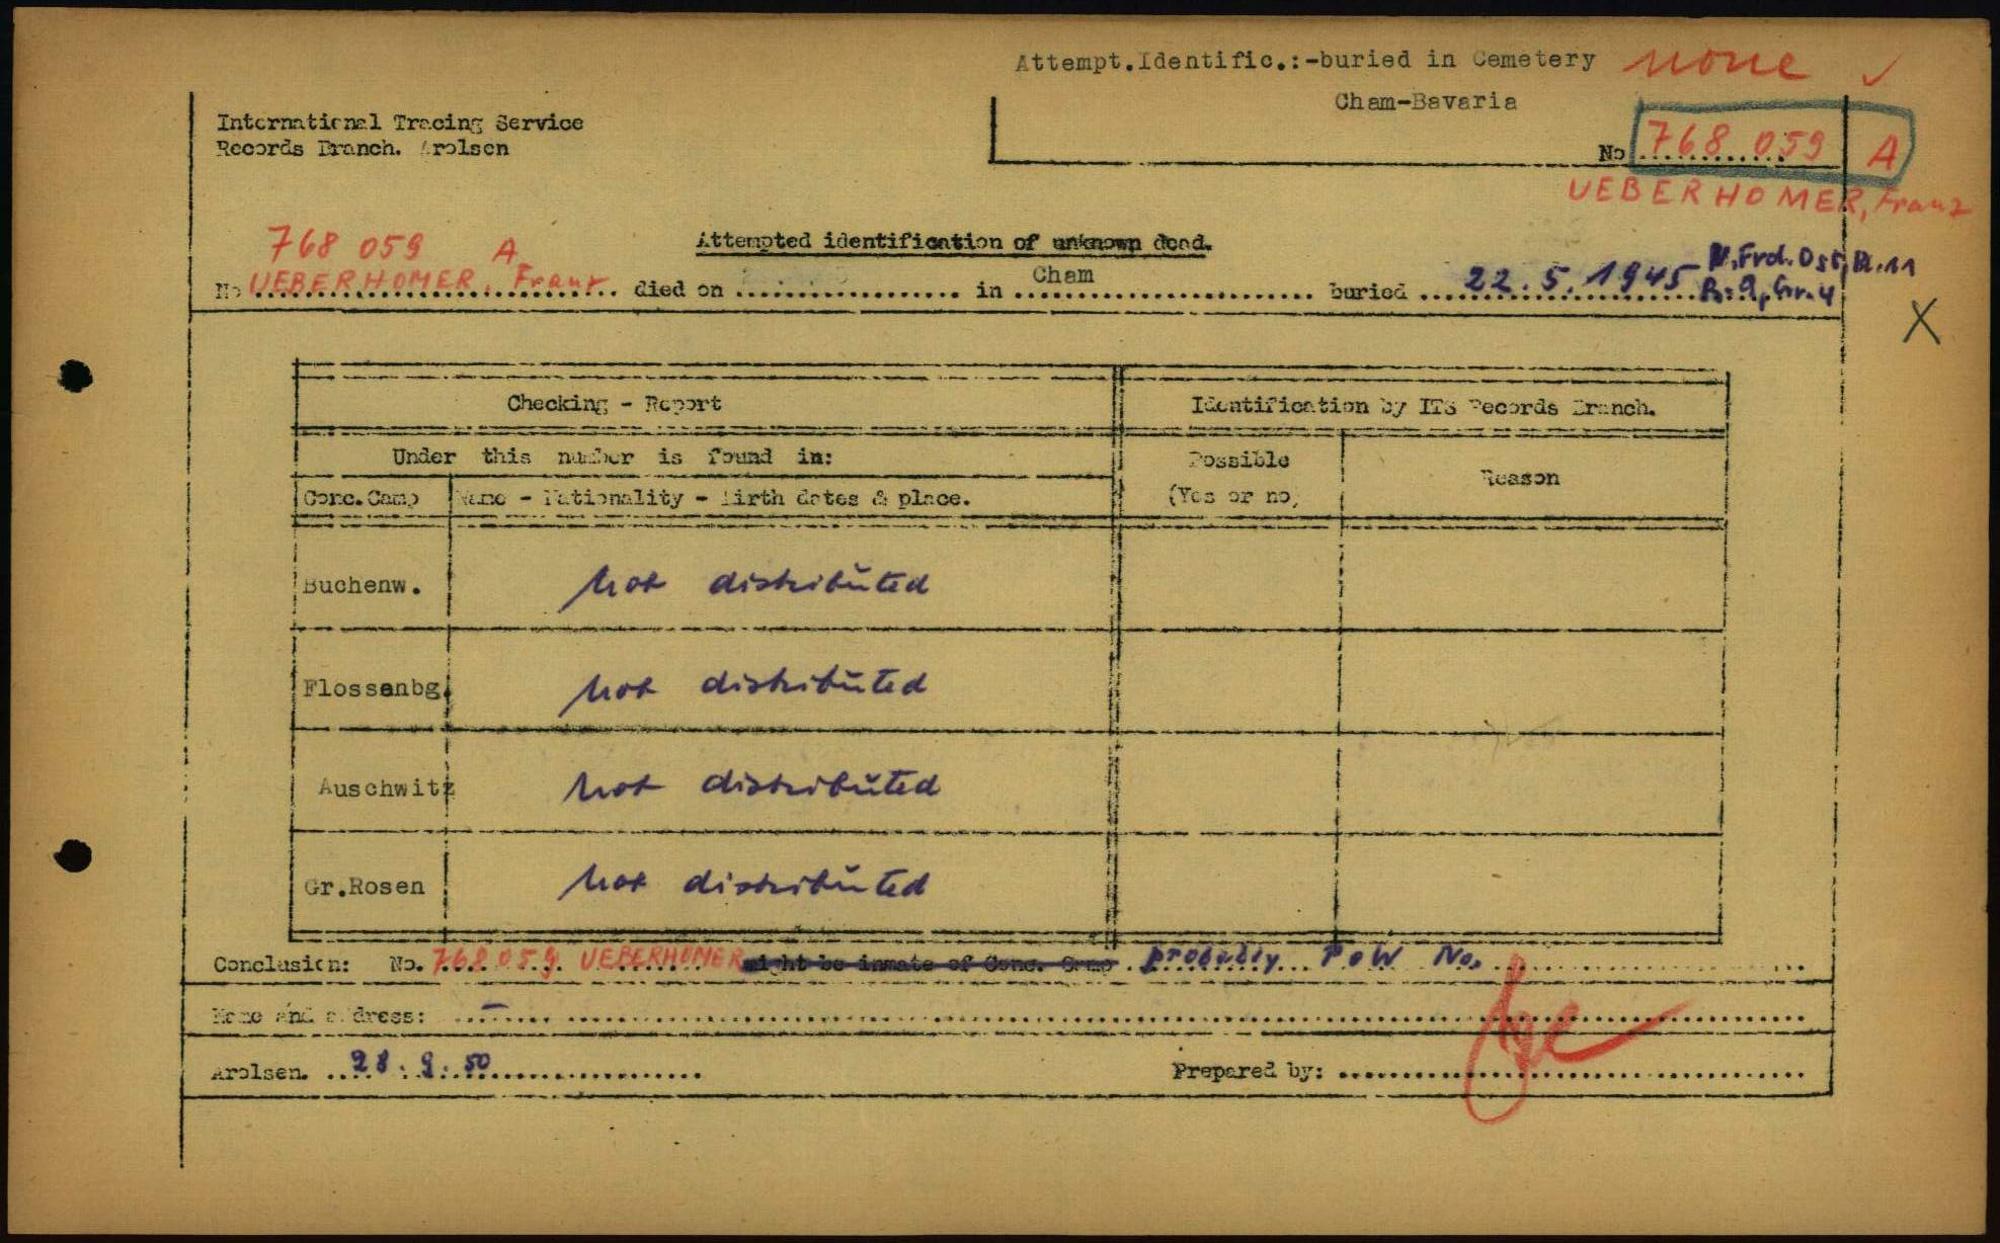 Attempt.Identific.:-buried in Cemetery none ✓
Cham-Bavaria
International Tracing Service
Records Branch. Arolsen
No 768 059 A
UEBERHOMER, Franz
Attempted identification of unknown dead.
768 059 A
No UEBERHOMER, Franz died on .................. in Cham buried 22.5.1945 N.Frd.Ost,
X
Checking - Report
Identification by ITS Records Branch.
Under this number is found in:
Possible
(Yes or no)
Reason
Conc.Camp Name - Nationality - Birth dates & place.
Buchenw. not distributed
Flossenbg. not distributed
Auschwitz not distributed
Gr.Rosen not distributed
Conclusion: No. 768 059 UEBERHOMER might be inmate of Conc. Camp probably PoW No.
Name and address: —
Arolsen. 28.9.50 Prepared by: